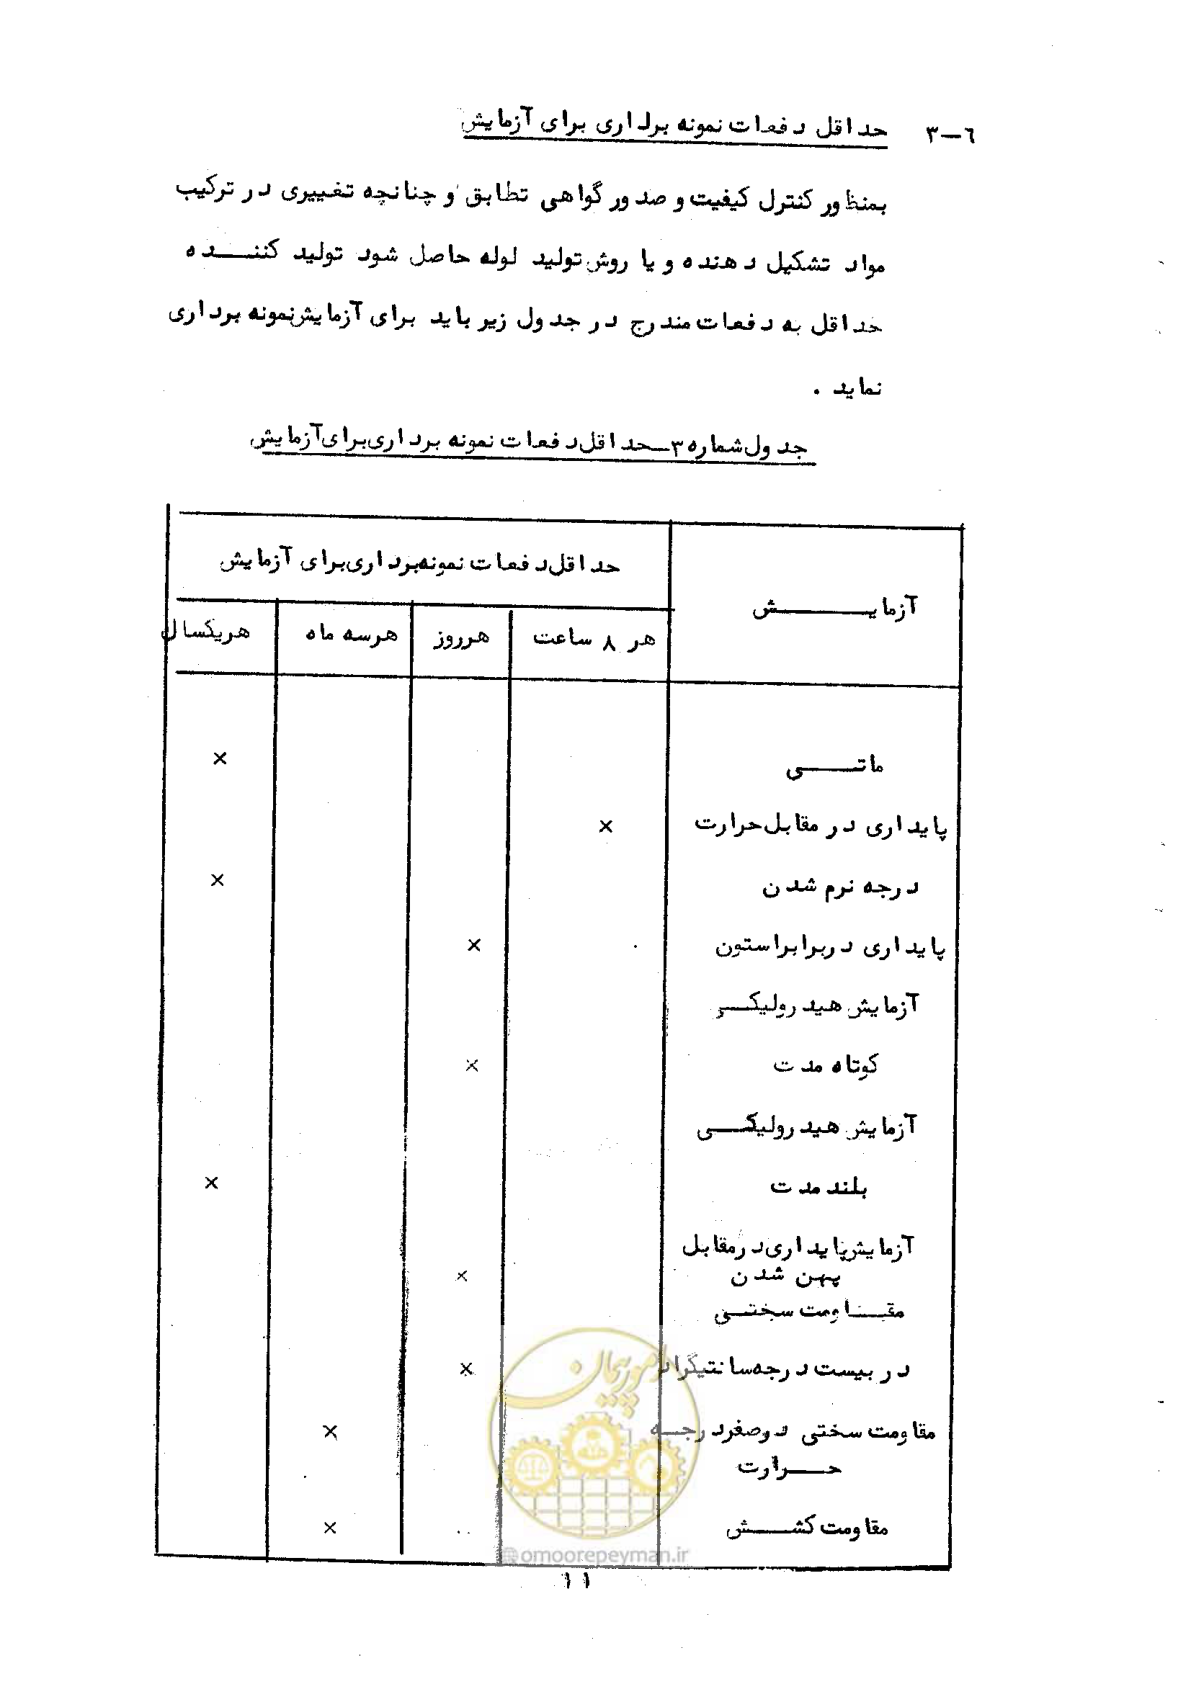 ۳-۶ حداقل دفعات نمونه برداری برای آزمایش
بمنظور کنترل کیفیت و صدور گواهی تطابق و چنانچه تغییری در ترکیب
مواد تشکیل دهنده و یا روش تولید لوله حاصل شود تولید کننده
حداقل به دفعات مندرج در جدول زیر باید برای آزمایش نمونه برداری
نماید .
جدول شماره ۳ـ حداقل دفعات نمونه برداری برای آزمایش
حداقل دفعات نمونه برداری برای آزمایش
آزمایش
هر ۸ ساعت هرروز هرسه ماه هریکسال
ماتی ×
پایداری در مقابل حرارت ×
درجه نرم شدن ×
پایداری در برابر استون ×
آزمایش هیدرولیکی
کوتاه مدت ×
آزمایش هیدرولیکی
بلند مدت ×
آزمایش پایداری در مقابل
پهن شدن ×
مقاومت سختی
در بیست درجه سانتیگراد ×
مقاومت سختی در صفر درجه ×
حرارت
مقاومت کشش ×
امور پیمان
@omoorepeyman.ir
۱۱